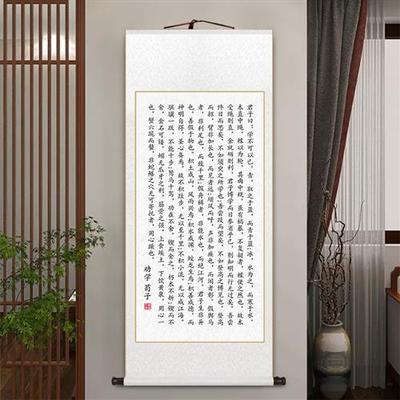 君子曰：学不可以已。青，取之于蓝，而青于蓝；冰，水为之，而寒于水。
木直中绳，輮以为轮，其曲中规。虽有槁暴，不复挺者，輮使之然也。故木
受绳则直，金就砺则利，君子博学而日参省乎己，则知明而行无过矣。吾尝
终日而思矣，不如须臾之所学也；吾尝跂而望矣，不如登高之博见也。登高
而招，臂非加长也，而见者远；顺风而呼，声非加疾也，而闻者彰。假舆马
者，非利足也，而致千里；假舟楫者，非能水也，而绝江河。君子生非异
也，善假于物也。积土成山，风雨兴焉；积水成渊，蛟龙生焉；积善成德，而
神明自得，圣心备焉。故不积跬步，无以至千里；不积小流，无以成江海。
骐骥一跃，不能十步；驽马十驾，功在不舍。锲而舍之，朽木不折；锲而不
舍，金石可镂。蚓无爪牙之利，筋骨之强，上食埃土，下饮黄泉，用心一
也。蟹六跪而二螯，非蛇鳝之穴无可寄托者，用心躁也。
劝学 荀子